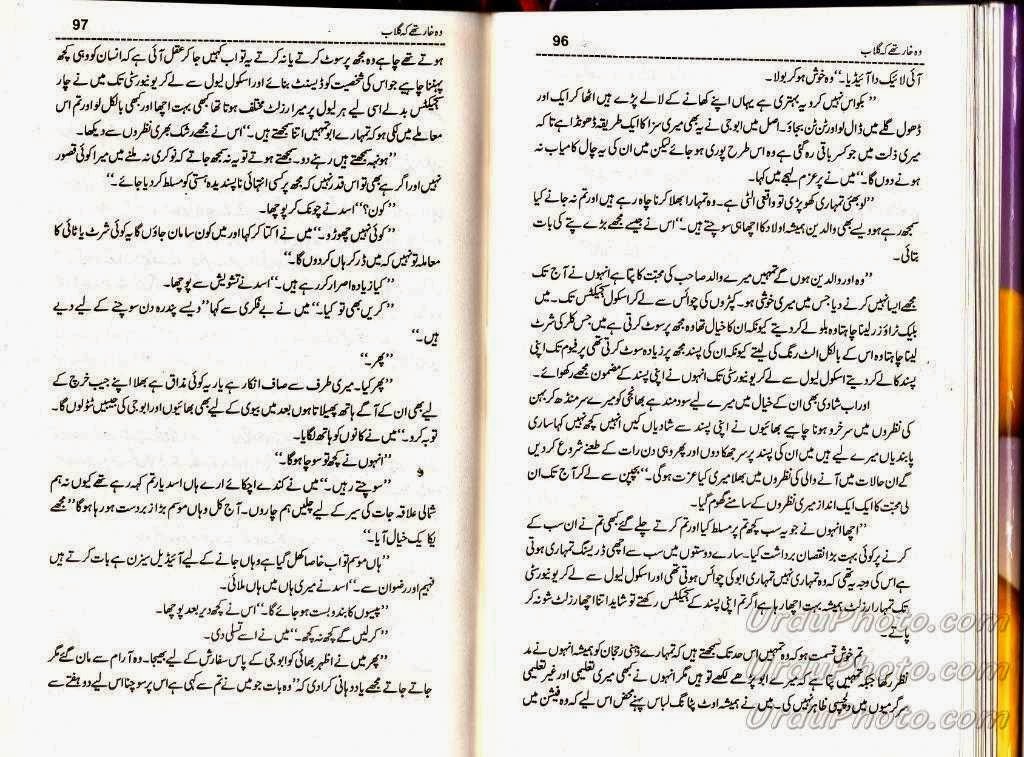 96
وہ خار تھے کہ گلاب
آئی لائیک دا آئیڈیا۔‘‘ وہ خوش ہو کر بولا۔
’’بکواس نہیں کرو یہ بہتری ہے یہاں اپنے کھانے کے لالے پڑے ہیں اٹھا کر ایک اور
ڈھول گلے میں ڈال لو اور ٹن ٹن بجاؤ۔ اصل میں ابو جی نے یہ بھی میری سزا کا ایک طریقہ ڈھونڈا ہے تا کہ
میری ذلت میں جو کسر باقی رہ گئی ہے وہ اس طرح پوری ہو جائے لیکن میں ان کی یہ چال کامیاب نہ
ہونے دوں گا۔‘‘ میں نے پر عزم لہجے میں کہا۔
’’لو بھئی تمہاری کھوپڑی تو واقعی الٹی ہے۔ وہ تمہارا بھلا کرنا چاہ رہے ہیں اور تم نہ جانے کیا
سمجھ رہے ہو ویسے بھی والدین ہمیشہ اولاد کا اچھا ہی سوچتے ہیں۔‘‘ اس نے جیسے مجھے بڑے پتے کی بات
بتائی۔
’’وہ اور والدین ہوں گے تمہیں میرے والد صاحب کی محبت کا پتا ہے انہوں نے آج تک
مجھے ایسا نہیں کرنے دیا جس میں میری خوشی ہو۔ کپڑوں کی چوائس سے لے کر اسکول سبجیکٹس تک۔ میں
بلیک ٹراؤزر لینا چاہتا وہ بلو لے کر دیتے کیونکہ ان کا خیال تھا وہ مجھ پر سوٹ کرتی ہے میں جس کلر کی شرٹ
لینا چاہتا وہ اس کے بالکل الٹ رنگ کی لیتے کیونکہ ان کی پسند مجھ پر زیادہ سوٹ کرتی تھی پرفیوم تک اپنی
پسند کا لے کر دیتے اسکول لیول سے لے کر یونیورسٹی تک انہوں نے اپنی پسند کے مضمون مجھے رکھوائے۔
اور اب شادی بھی ان کے خیال میں میرے لیے سودمند ہے بھانجی کو میرے سر منڈھ کر بہن
کی نظروں میں سرخرو ہونا چاہیے بھائیوں نے اپنی پسند سے شادیاں کیں انہیں کچھ نہیں کہا ساری
پابندیاں میرے لیے ہیں میں ان کی پسند پر سر جھکا دوں اور پھر وہی دن رات کے طعنے شروع کر دیں
گے ان حالات میں آنے والی کی نظروں میں بھلا میری کیا عزت ہو گی۔‘‘ بچپن سے لے کر آج تک ان
کی محبت کا ایک ایک انداز میری نظروں کے سامنے گھوم گیا۔
’’اچھا انہوں نے جو یہ سب کچھ تم پر مسلط کیا اور تم کرتے چلے گئے کبھی تم نے ان سب کے
کرنے پر کوئی بہت بڑا نقصان برداشت کیا۔ سارے دوستوں میں سب سے اچھی ڈریسنگ تمہاری ہوتی
ہے اس کی وجہ یہ تھی کہ وہ تمہاری نہیں تمہاری ابو کی چوائس ہوتی تھی اور اسکول لیول سے لے کر یونیورسٹی
تک تمہارا رزلٹ ہمیشہ بہت اچھا رہا ہے اگر تم اپنی پسند کے سبجیکٹس رکھتے تو شاید اتنا اچھا رزلٹ شو نہ کر
پاتے۔
تم خوش قسمت ہو کہ وہ تمہیں اس حد تک سمجھتے ہیں کہ تمہارے ذہنی رجحان کو ہمیشہ انہوں نے مد
نظر رکھا جبکہ تمہیں پتا ہے کہ میرے ابو پڑھے لکھے تو ہیں مگر انہوں نے کبھی میری تعلیمی اور غیر تعلیمی
سرگرمیوں میں دلچسپی ظاہر نہیں کی۔ میں نے ہمیشہ اوٹ پٹانگ لباس پہنے محض اس لیے کہ وہ فیشن میں
97
وہ خار تھے کہ گلاب
ہوتے تھے چاہے وہ مجھ پر سوٹ کرتے یا نہ کرتے یہ تو اب کہیں جا کر عقل آئی ہے کہ انسان کو وہی کچھ
پہننا چاہیے جو اس کی شخصیت کو ڈیسنٹ بنائے اور اسکول لیول سے لے کر یونیورسٹی تک میں نے چار
سبجیکٹس بدلے اسی لیے ہر لیول پر میرا رزلٹ مختلف ہوتا تھا کبھی بہت اچھا اور کبھی بالکل لو اور تم اس
معاملے میں لکی ہو کہ تمہارے ابو تمہیں اتنا سمجھتے ہیں۔‘‘ اس نے مجھے رشک بھری نظروں سے دیکھا۔
’’ہونہہ سمجھتے ہیں رہنے دو۔ سمجھتے ہوتے تو یہ نہ سمجھ جاتے کہ نوکری نہ ملنے میں میرا کوئی قصور
نہیں اور اگر ہے بھی تو اس قدر نہیں کہ مجھ پر کسی انتہائی ناپسندیدہ ہستی کو مسلط کر دیا جائے۔‘‘
’’کون؟‘‘ اسد نے چونک کر پوچھا۔
’’کوئی نہیں چھوڑو۔‘‘ میں نے اکتا کر کہا اور میں کون سا مان جاؤں گا یہ کوئی شرٹ یا ٹائی کا
معاملہ تو نہیں کہ میں ڈر کر ہاں کر دوں گا۔‘‘
’’کیا زیادہ اصرار کر رہے ہیں۔‘‘ اسد نے تشویش سے پوچھا۔
’’کریں بھی تو کیا۔‘‘ میں نے بے فکری سے کہا ’’ویسے پندرہ دن سوچنے کے لیے دیے
ہیں۔‘‘
’’پھر۔‘‘
’’پھر کیا۔ میری طرف سے صاف انکار ہے یار یہ کوئی مذاق ہے بھلا اپنے جیب خرچ کے
لیے بھی ان کے آگے ہاتھ پھیلاتا ہوں بعد میں بیوی کے لیے بھی بھائیوں اور ابو جی کی جیبیں ٹٹولوں گا۔
توبہ کرو۔‘‘ میں نے کانوں کو ہاتھ لگایا۔
’’انہوں نے کچھ تو سوچا ہو گا۔‘‘
’’سوچتے رہیں۔‘‘ میں نے کندھے اچکائے ارے ہاں اسد یار تم کہہ رہے تھے کیوں نہ ہم
شمالی علاقہ جات کی سیر کے لیے چلیں ہم چاروں۔ آج کل وہاں موسم بڑا زبردست ہو رہا ہو گا‘‘ مجھے
یکایک خیال آیا۔‘‘
’’ہاں موسم تو اب خاصا کھل گیا ہے وہاں جانے کے لیے آئیڈیل سیزن ہے بات کرتے ہیں
فہیم اور رضوان سے۔‘‘ اسد نے میری ہاں میں ہاں ملائی۔
’’پیسوں کا بندوبست ہو جائے گا۔‘‘ اس نے کچھ دیر بعد پوچھا۔
’’کر لیں گے کچھ نہ کچھ۔‘‘ میں نے اسے تسلی دی۔
’’پھر میں نے اظہر بھائی کو ابو جی کے پاس سفارش کے لیے بھیجا۔ وہ آرام سے مان گئے مگر
جاتے جاتے مجھے یاد دہانی کرا دی کہ ’’وہ بات جو میں نے تم سے کہی ہے اس پر سوچنا اس لیے دو ہفتے سے
UrduPhoto.com
UrduPhoto.com
UrduPhoto.com